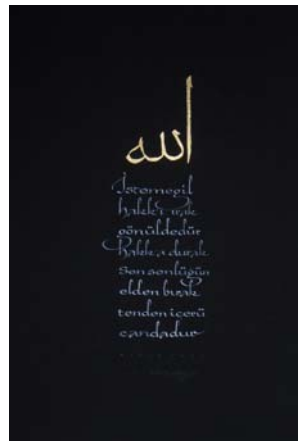 الله
İstemegil
hakk'ı ırak
gönüldedür
Hakk'a durak
sen senlügün
elden bırak
tenden içerü
candadur